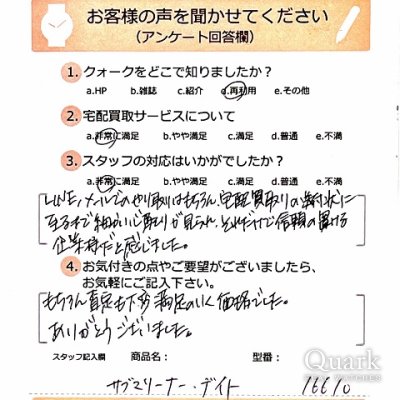 お客様の声を聞かせてください
(アンケート回答欄)
1. クォークをどこで知りましたか?
a.HP b.雑誌 c.紹介 d.再利用 e.その他
2. 宅配買取サービスについて
a.非常に満足 b.やや満足 c.満足 d.普通 e.不満
3. スタッフの対応はいかがでしたか?
a.非常に満足 b.やや満足 c.満足 d.普通 e.不満
LINE、メールでのやり取りはもちろん、宅配買取りの案内状に
至るまで細かい心配りが見られ、それだけで信頼の置ける
企業様だと感じました。
4. お気付きの点やご要望がございましたら、
お気軽にご記入下さい。
もちろん査定も下り満足のいく価格でした。
ありがとうございました。
スタッフ記入欄 商品名: 型番:
サブマリーナー・デイト 16610
Quark
WATCHES